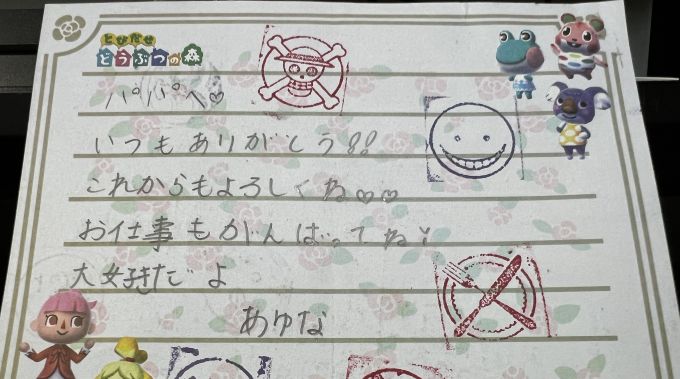 とびだせ
どうぶつの森
パパへ♡
いつもありがとう!!
これからもよろしくね♡♡
お仕事もがんばってね!
大好きだよ
あゆな